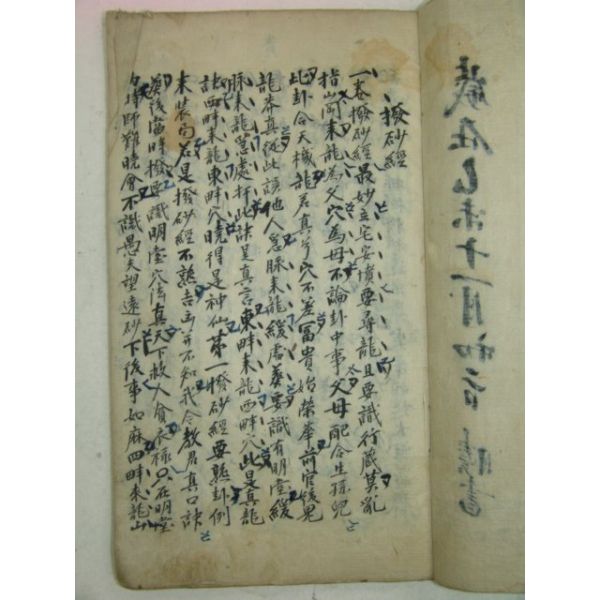 歲在乙未十一月初六日
撥砂經
一卷撥砂經最妙立宅安墳要尋龍且要識行藏莫亂
指岡來龍為父穴為母不論卦中事父母配合生孫兒
此卦合天機龍若真兮穴不差富貴始榮華前官後鬼
龍奔真從此讀他人急脉來龍緩處葬要識有明堂緩
脉來龍急處扦此訣是真言東畔來龍西畔穴此是真龍
訣西畔來龍東畔穴曉得是神仙第一撥砂經要熟卦例
來裝向若是撥砂經不熟吉凶並不知我今教君真口訣
葬後當時撥要識明堂穴法真天下救人貧衣祿只在明堂
師難曉會不識愚夫望遠砂下後事如麻四畔來龍山